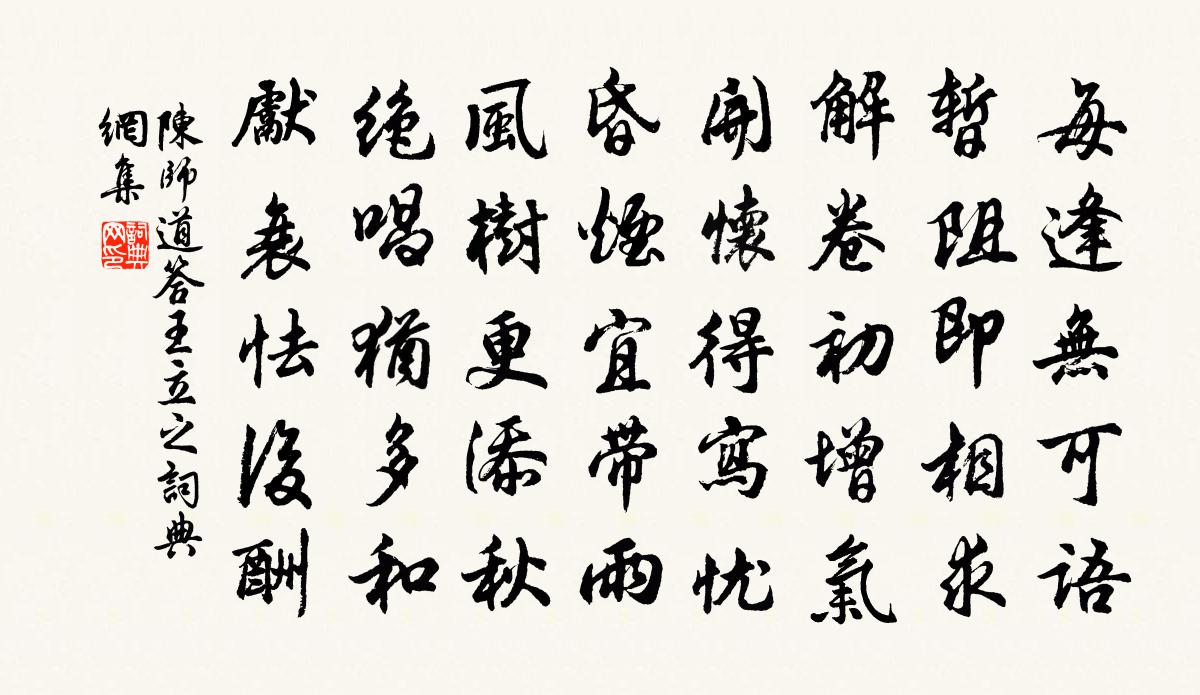 每逢無可語
暫阻即相求
解卷初增氣
開懷得寫忧
昏煙宜帶雨
風樹更添秋
絕唱猶多和
獻衰怯後酬
陳師道答王立之詞典
網集
詞典
网印